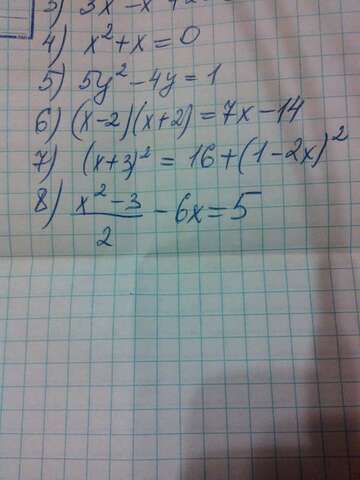 4) x² + x = 0
5) 5y² - 4y = 1
6) (x-2)(x+2) = 7x - 14
7) (x+3)² = 16 + (1-2x)²
8) (x² - 3)/2 - 6x = 5